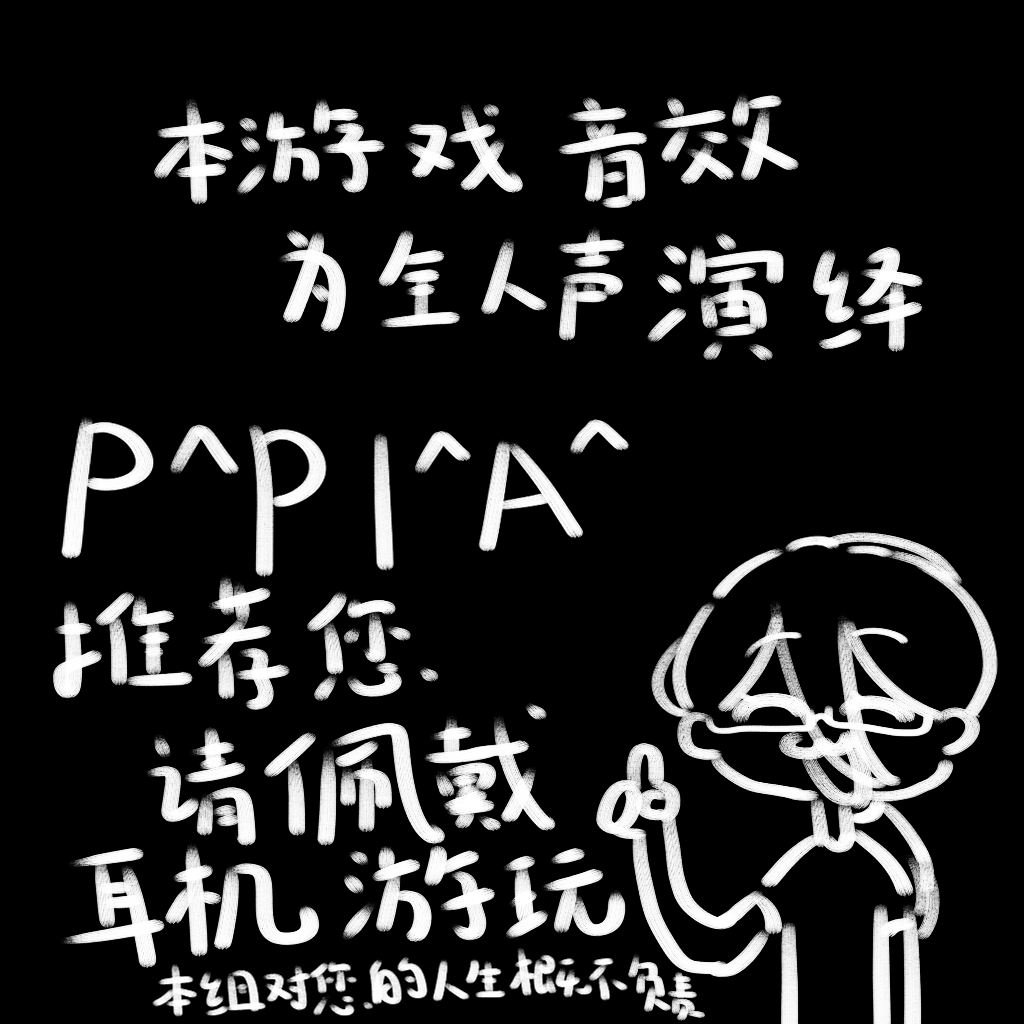 本游戏音效
为全人声演绎
P^PI^A^
推荐您
请佩戴
耳机游玩
本组对您的人生概不负责